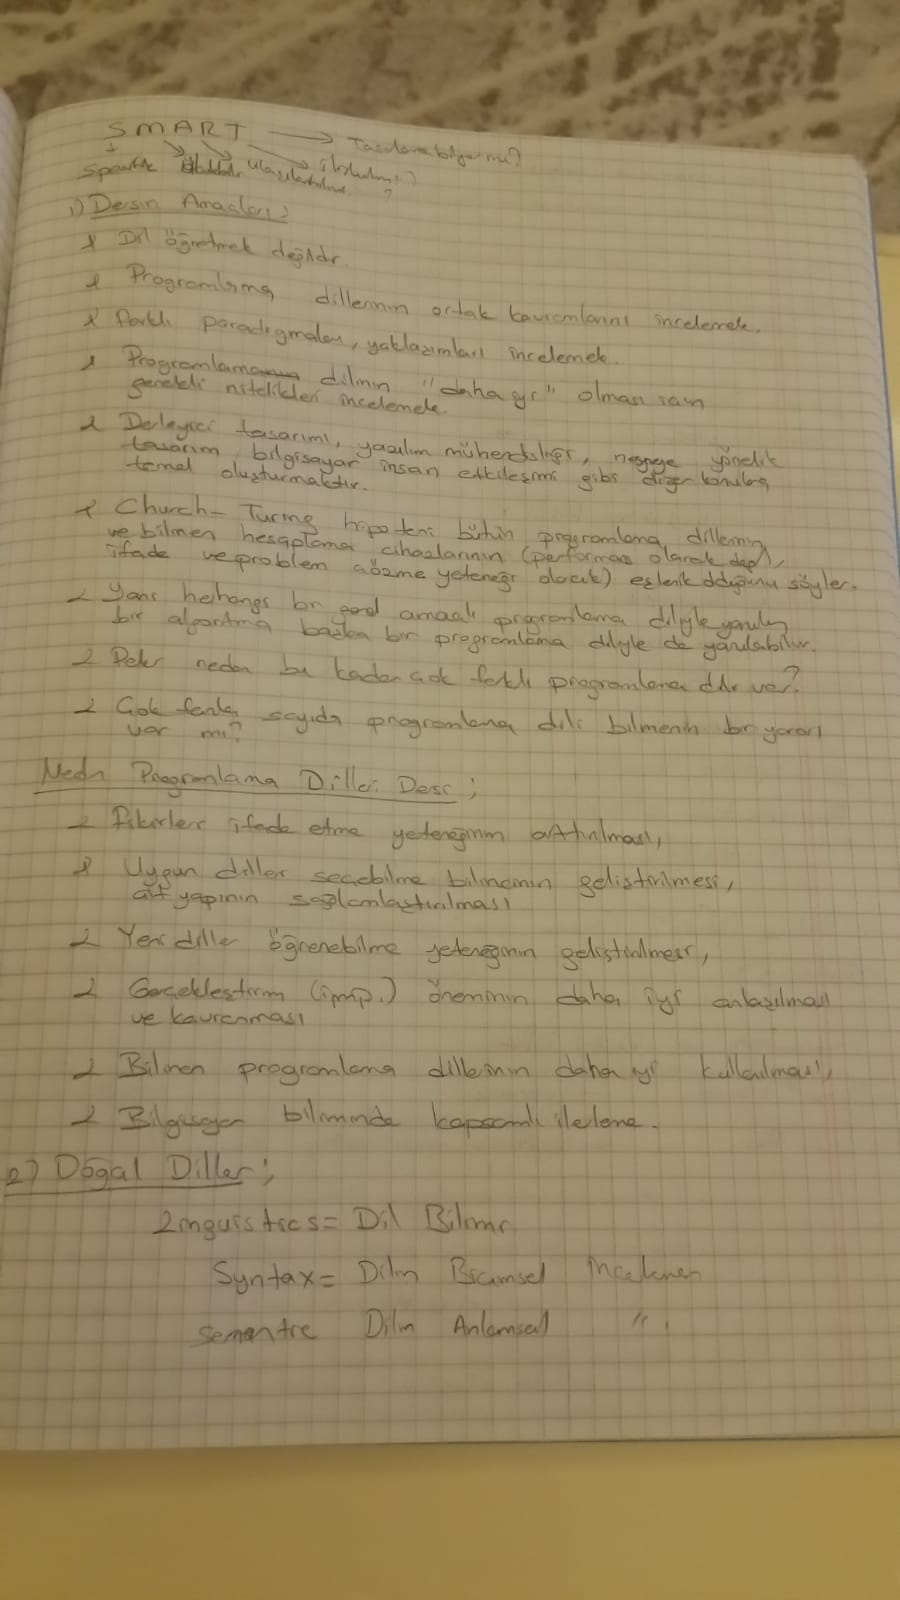 SMART → 
Spesifik Ulaşılabilir İlişkili mi?
1) Dersin Amaçları:
* Dil öğretmek değildir.
* Programlama dillerinin ortak kavramlarını incelemek.
* Farklı paradigmaları, yaklaşımları incelemek.
* Programlama dilinin "daha iyi" olması için
gerekli nitelikleri incelemek.
* Derleyici tasarımı, yazılım mühendisliği, nesneye yönelik
tasarım, bilgisayar insan etkileşimi gibi diğer konulara
temel oluşturmaktır.
* Church-Turing hipotezi bütün programlama dillerinin
ve bilinen hesaplama cihazlarının (performans olarak değil,
ifade ve problem çözme yeteneği olarak) eşlenik olduğunu söyler.
* Yani herhangi bir genel amaçlı programlama diliyle yazılan
bir algoritma başka bir programlama diliyle de yazılabilir.
* Peki neden bu kadar çok farklı programlama dili var?
* Çok fazla sayıda programlama dili bilmenin bir yararı
var mı?
Neden Programlama Dilleri Dersi;
* Fikirleri ifade etme yeteneğinin arttırılması,
* Uygun diller seçebilme bilincinin geliştirilmesi,
alt yapının sağlamlaştırılması
* Yeni diller öğrenebilme yeteneğinin geliştirilmesi,
* Gerçekleştirim (imp.) öneminin daha iyi anlaşılması
ve kavranması
* Bilinen programlama dillerinin daha iyi kullanılması,
* Bilgisayar biliminde kapsamlı ilerleme.
2) Doğal Diller;
Linguistics = Dil Bilimi
Syntax = Dilin Biçimsel İncelenmesi
Semantic Dilin Anlamsal "